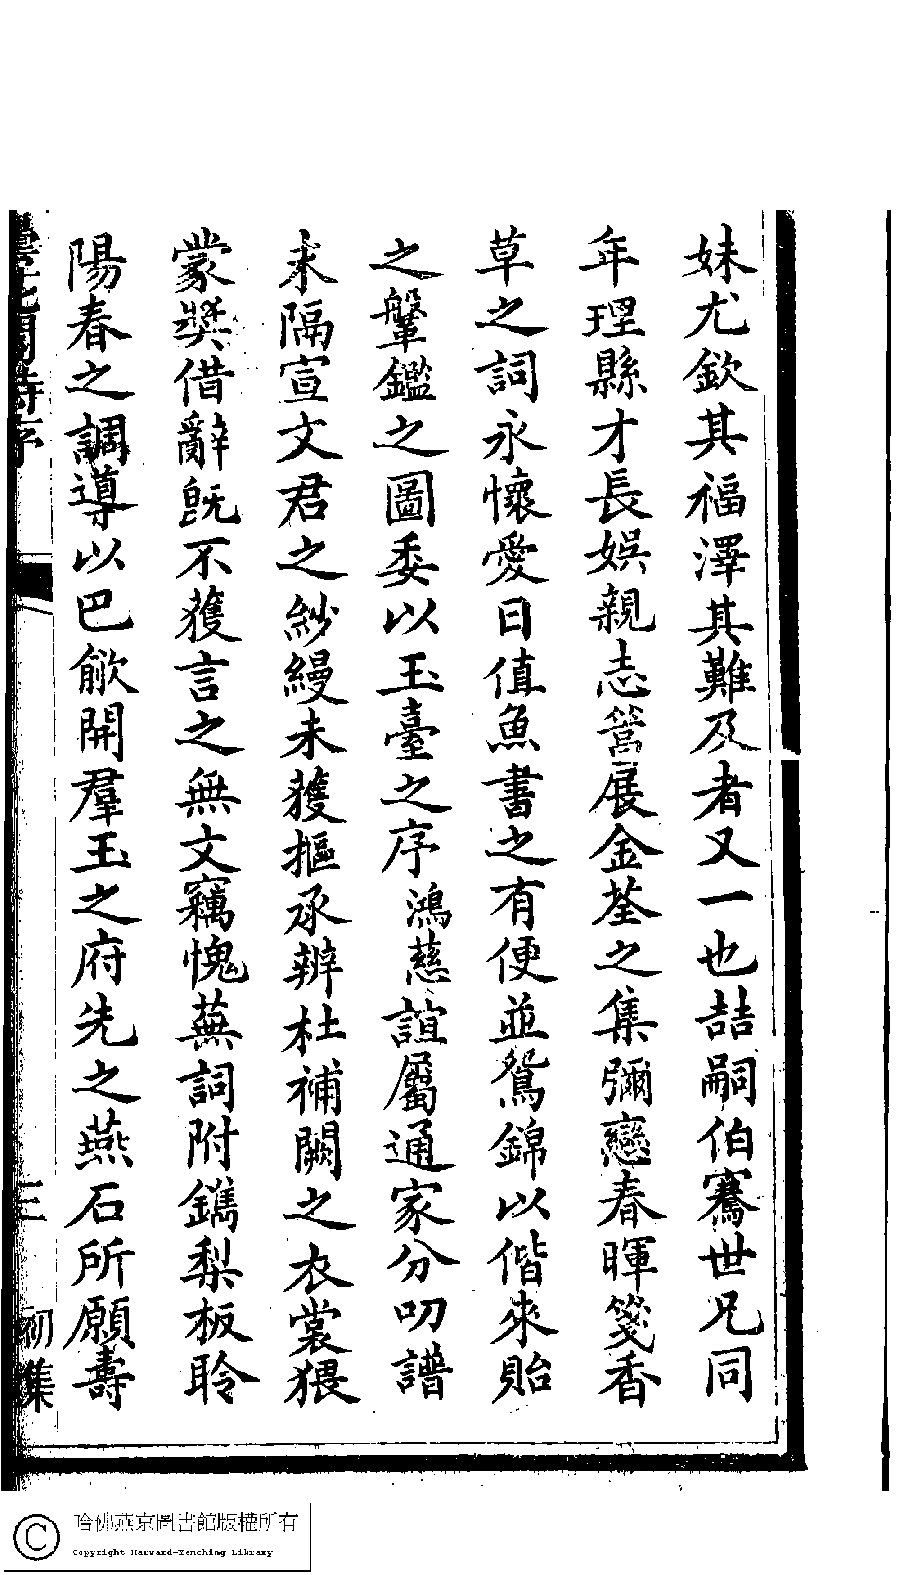 妹尤欽其福澤其難及者又一也喆嗣伯騫世兄同
年理縣才長娛親志篤展金荃之集彌戀春暉箋香
草之詞永懷愛日值魚書之有便並鴛錦以偕來貽
之鞶鑑之圖委以玉臺之序鴻慈誼屬通家分叨譜
末隔宣文君之紗縵未獲摳承辨杜補闕之衣裳猥
蒙獎借辭旣不獲言之無文竊愧蕪詞附鐫梨板聆
陽春之調導以巴歈開羣玉之府先之燕石所願壽
閣詩序
三
初集
哈佛燕京圖書館版權所有
Copyright Harvard-Yenching Library